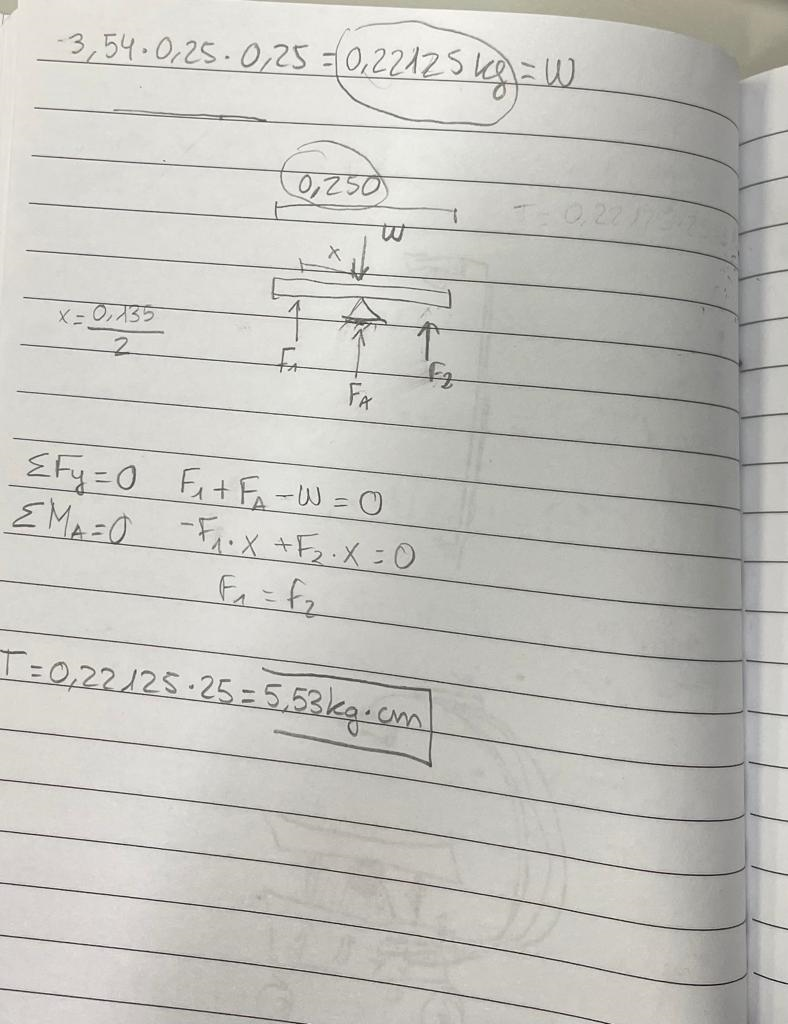 3,54·0,25·0,25 = 0,22125 kg = W
0,250
W
x
x = 0,135/2
F₁
F₂
F_A
ΣFy = 0 F₁ + F_A − W = 0
ΣM_A = 0 −F₁·x + F₂·x = 0
F₁ = f₂
T = 0,22125·25 = 5,53 kg·cm